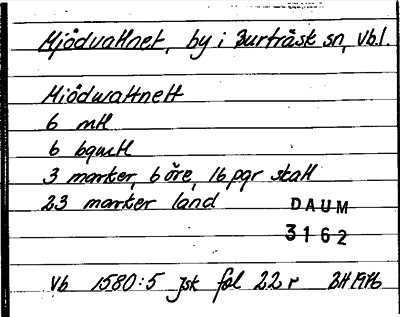 Mjödvattnet, by i Burträsk sn, Vb.l.
Miödwattnett
6 mtl
6 bgwtl
3 marker, 6 öre, 16 pgr skatt
23 marker land
DAUM
3162
Vb 1580:5 Jsk fol 22 r BH 1976